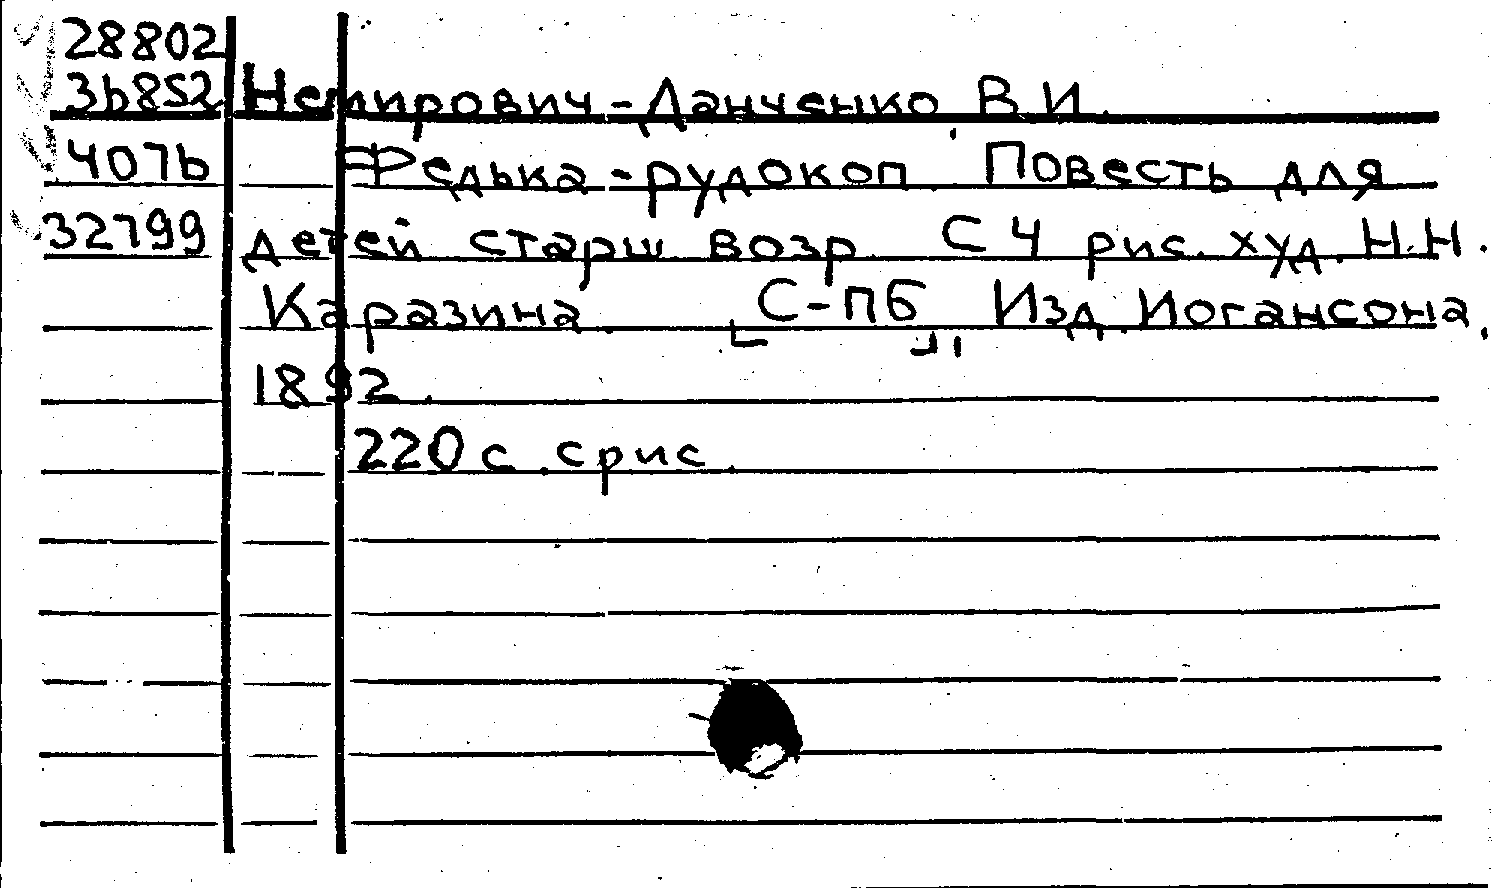 28802
36852 Немирович-Данченко В.И.
4076 Федька-рудокоп. Повесть для
32799 детей старш. возр. С 4 рис. худ. Н.Н.
Каразина. [С-пб], Изд. Иогансона,
1892.
220 с. с рис.